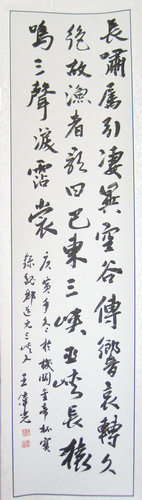 長嘯屬引淒異空谷傳響哀轉久
絕故漁者歌曰巴東三峽巫峽長猿
鳴三聲淚霑裳
庚寅年冬於機關
錄酈道元三峽文王偉光